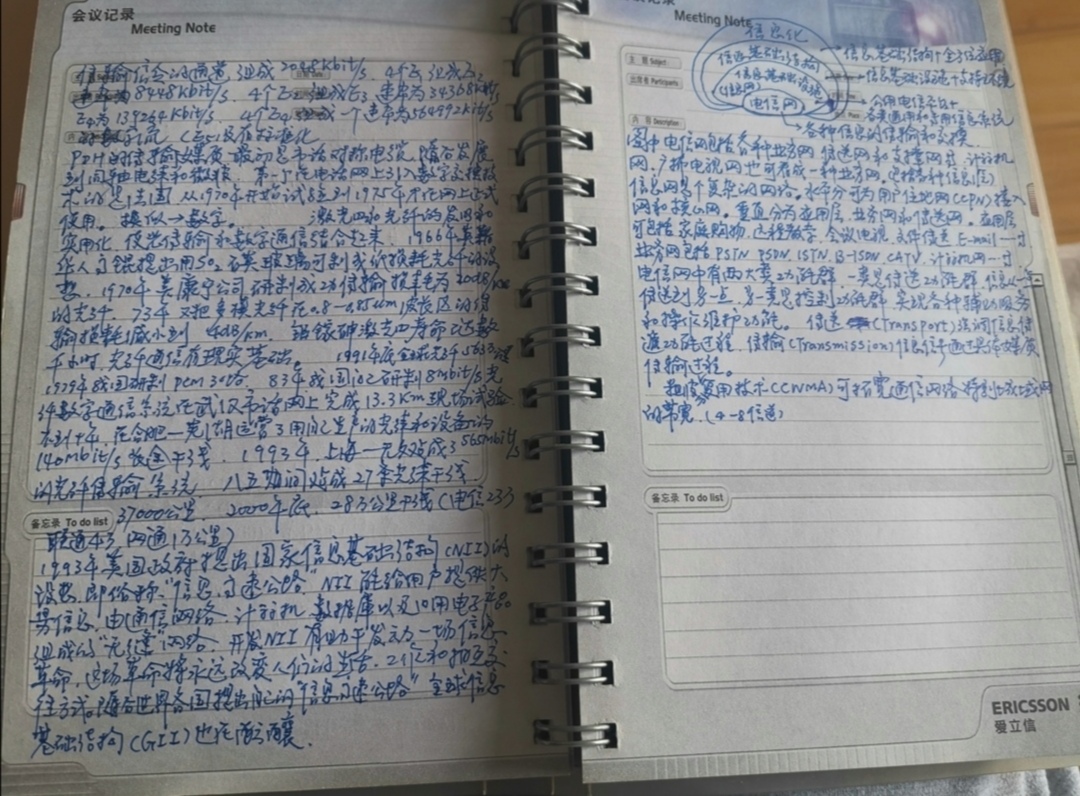 会议记录
Meeting Note
传输信令的通道,组成2048Kbit/s. 4个E1组成E2
速率为8448Kbit/s. 4个E2组成E3 速率为34368Kbit/s
E4为139264Kbit/s. 4个E4组成一个速率为564992Kbit/s
的数字流(E5)没有标准化
PDH的传输媒质最初是市话对称电缆,随着发展
到同轴电缆和微波. 第一个在电话网上引入数字交换技
术的是法国 从1970年开始试验到1975年才在网上正式
使用. 模似→数字. 激光四和光纤的发明和
实用化,使光传输和数字通信结合起来. 1966年英籍
华人高锟提出用SO2石英玻璃可制成低损耗光纤的设
想. 1970年美康宁公司研制成功传输损耗为20dB/km
的光纤. 73年又把多模光纤在0.8-0.85um波长区的传
输损耗减小到 4dB/km. 镓铝砷激光四寿命已达数
千小时,光纤通信有现实基础. 1991年底全球光纤563万
1979年我国研制PCM30路. 83年我国自己研制8mbit/s光
纤数字通信系统在武汉市话网上完成13.3Km现场试验
不到十年,在合肥—芜湖运营了用自己生产的光缆和设备的
140mbit/s长途干线. 1993年,上海—无锡建成565mbit/s
的光纤传输系统. 八五期间建成27条光缆干线.
37000公里. 2000年底,28万公里干线(电信23万
备忘录 To do list
联通4万 网通1万公里)
1993年美国政府提出国家信息基础结构(NII)的
设想,即俗称“信息高速公路”NII能给用户提供大
量信息,由通信网络、计算机、数据库以及日用电子产品
组成的“无缝”网络. 开发NII有助于发动一场信息
革命,这场革命将永远改变人们的生活、工作和相互交
往方式.随着世界各国提出自己的“信息高速公路”全球信息
基础结构(GII)也在酝酿.
会议记录
Meeting Note
主题 Subject
出席者 Participants
内容 Description
信息化
信息基础结构
信息基础设施
电信网
→信息基础结构十全球信息
→信息基础设施十支持环境
→公用电信网十
各类通用和专用信息系统
→各种信息的传输和交换
图中电信网包括各种业务网 传送网和支撑网等,计算机
网,广播电视网也可看成一种业务网,(包括各种信息)
信息网是个复杂的网络. 水平分可为用户住地网(CPN)接入
网和核心网. 垂直分为应用层,业务网和传送网. 应用层
可包括家庭购物、远程教学、会议电视、文件传送、E-mail…
业务网包括PSTN PSDN ISTN. B-ISDN CATV 计算机网…
电信网中有两大类功能群 一类是传送功能群 信息从一点
传送到另一点,另一类是控制功能群,实现各种辅助服务
和操作维护功能. 传送(Transport)逻辑信息传
递功能过程,传输(Transmission)信息信号通过具体媒质
传输过程.
粗波复用技术(CWMA)可拓宽通信网络,特别城域网
的带宽.(4-8信道)
备忘录 To do list
ERICSSON
爱立信